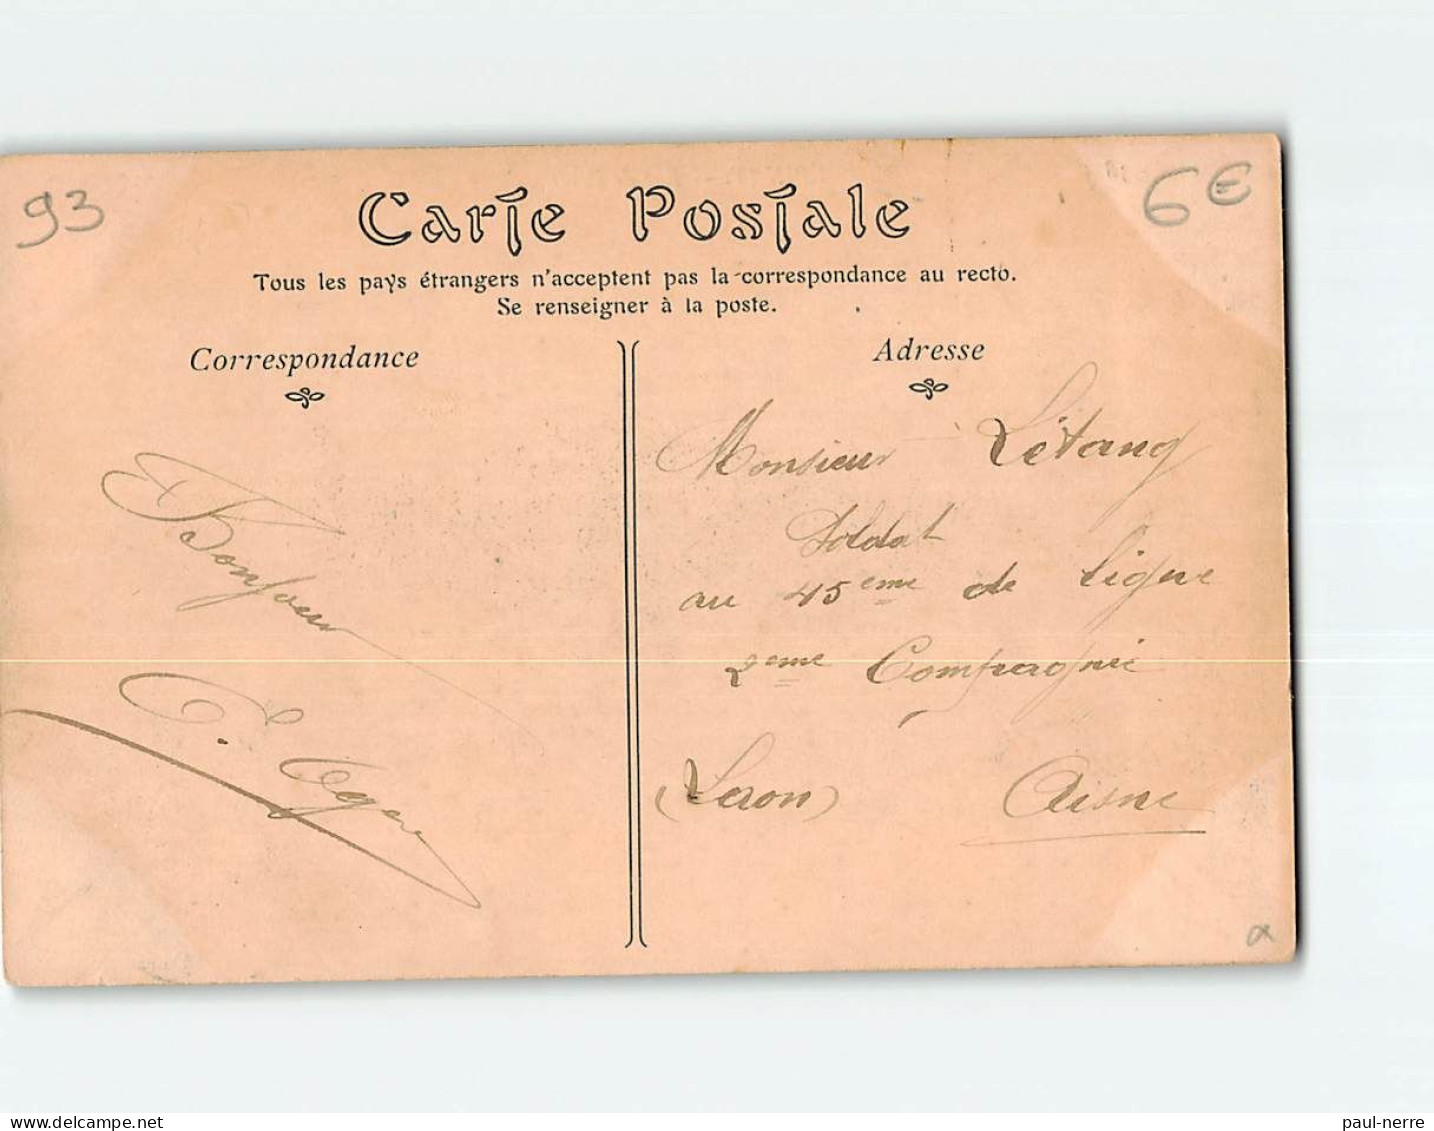 93
6€
Carte Postale
Tous les pays étrangers n'acceptent pas la correspondance au recto.
Se renseigner à la poste.
Correspondance
Bonjour
Adresse
Monsieur Létang
Soldat
au 45eme de ligne
2eme Compagnie
(Laon) Aisne
paul-nerre